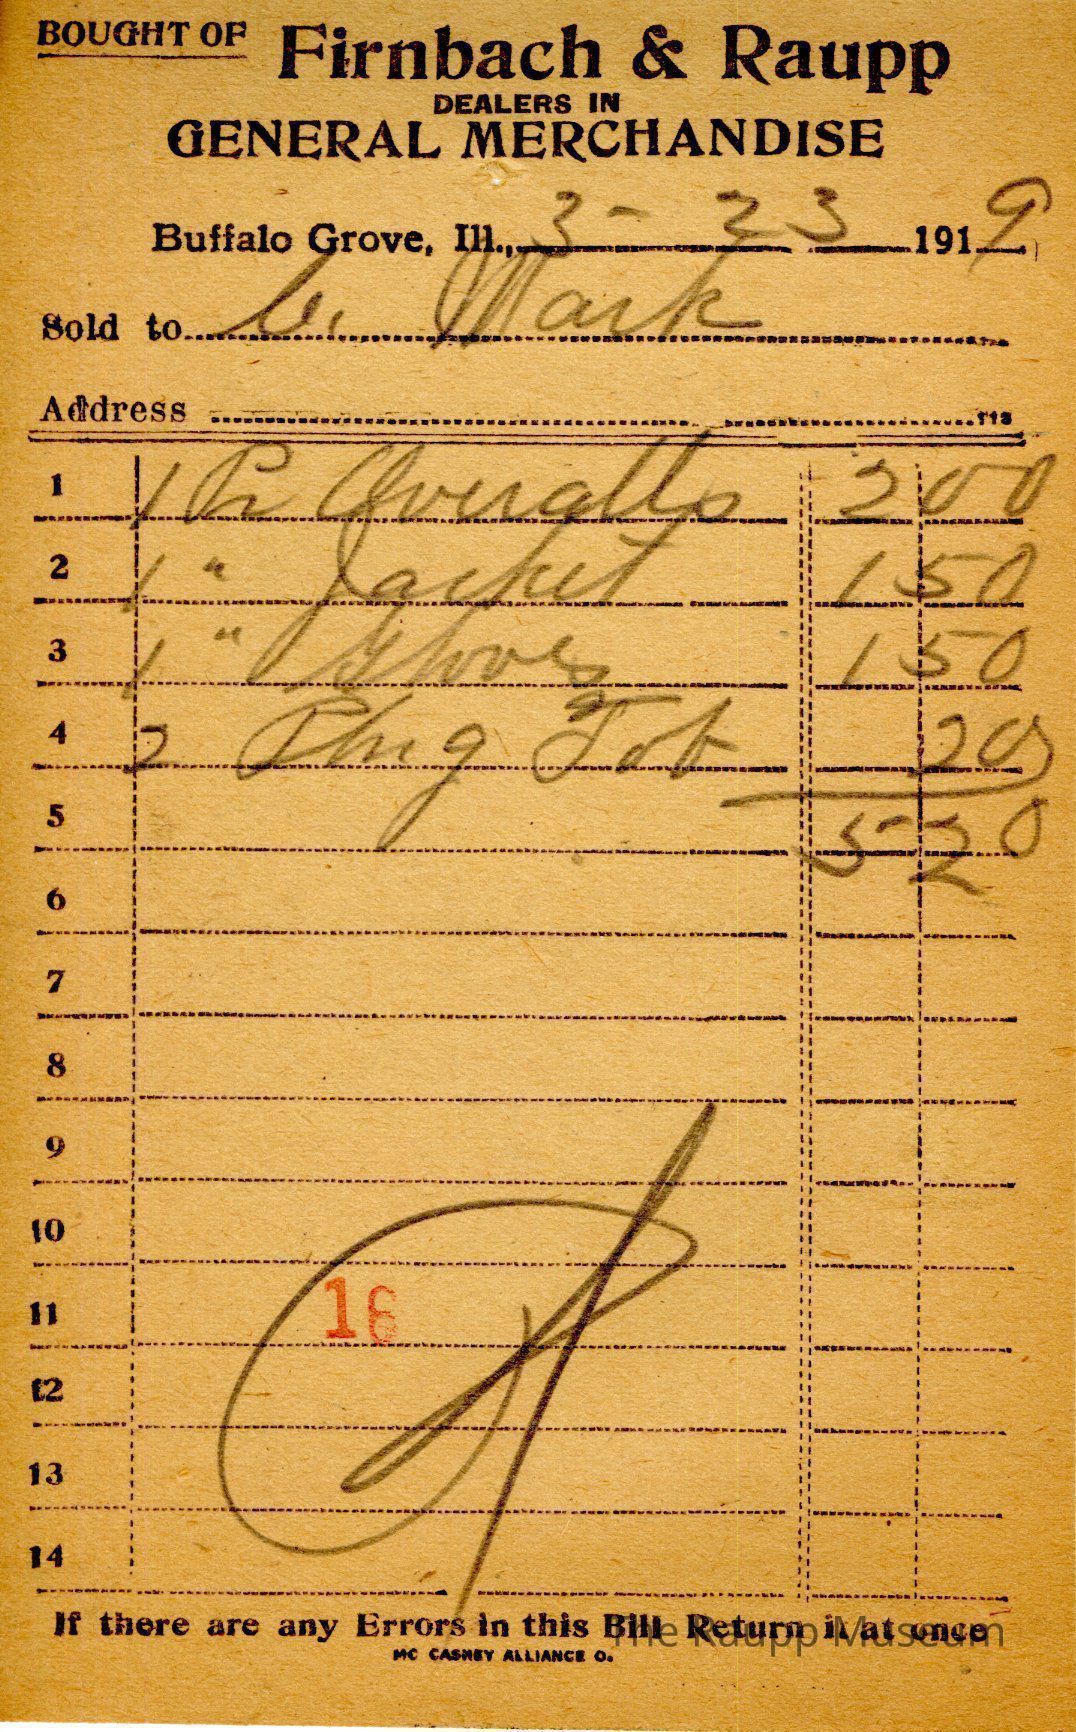 BOUGHT OF Firnbach & Raupp
DEALERS IN
GENERAL MERCHANDISE
Buffalo Grove, Ill., 3- 23 1919
Sold to C. Mark
Address
1 1 Pr Overalls 2 00
2 1 " Jacket 1 50
3 1 " Gloves 1 50
4 2 Plug Tob 20
5 5 20
6
7
8
9
10
11 16
12
13
14
If there are any Errors in this Bill Return it at once
The Raupp Museum
MC CASKEY ALLIANCE O.